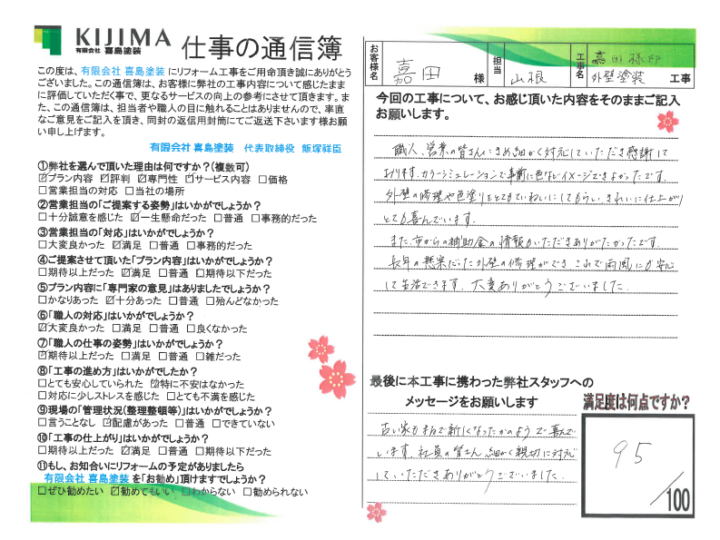 KIJIMA
有限会社 喜島塗装
仕事の通信簿
この度は、有限会社 喜島塗装 にリフォーム工事をご用命頂き誠にありがとう
ございました。この通信簿は、お客様に弊社の工事内容について感じたまま
に評価していただく事で、更なるサービスの向上の参考にさせて頂きます。ま
た、この通信簿は、担当者や職人の目に触れることはありませんので、率直
なご意見をご記入を頂き、同封の返信用封筒にてご返送下さいます様お願
い申し上げます。
有限会社 喜島塗装 代表取締役 飯塚祥臣
①弊社を選んで頂いた理由は何ですか?(複数可)
☑プラン内容 ☑評判 ☑専門性 ☑サービス内容 □価格
□営業担当の対応 □当社の場所
②営業担当の「ご提案する姿勢」はいかがでしょうか?
□十分誠意を感じた ☑一生懸命だった □普通 □事務的だった
③営業担当の「対応」はいかがでしょうか?
□大変良かった ☑満足 □普通 □事務的だった
④ご提案させて頂いた「プラン内容」はいかがでしょうか?
□期待以上だった ☑満足 □普通 □期待以下だった
⑤プラン内容に「専門家の意見」はありましたでしょうか?
□かなりあった ☑十分あった □普通 □殆んどなかった
⑥「職人の対応」はいかがでしょうか?
☑大変良かった □満足 □普通 □良くなかった
⑦「職人の仕事の姿勢」はいかがでしょうか?
☑期待以上だった □満足 □普通 □雑だった
⑧「工事の進め方」はいかがでしたか?
□とても安心していられた ☑特に不安はなかった
□対応に少しストレスを感じた □とても不満を感じた
⑨現場の「管理状況(整理整頓等)」はいかがでしょうか?
□言うことなし ☑配慮があった □普通 □できていない
⑩「工事の仕上がり」はいかがでしょうか?
□期待以上だった ☑満足 □普通 □期待以下だった
⑪もし、お知合いにリフォームの予定がありましたら
有限会社 喜島塗装 を「お勧め」頂けますでしょうか?
□ぜひ勧めたい ☑勧めてもいい □わからない □勧められない
お客様名 嘉田 様 担当 山根 工事名 嘉田様邸 外壁塗装 工事
今回の工事について、お感じ頂いた内容をそのままご記入
お願いします。
職人、営業の皆さんにきめ細かく対応していただき感謝して
おります。カラーシミュレーションで事前に色などイメージできよかったです。
外壁の修理や色塗りをとてもていねいにしてもらい、きれいに仕上がり
とても喜んでいます。
また、市からの補助金の情報もいただきありがたかったです。
長年の懸案だった外壁の修理ができ、これで雨風にも安心
して生活できます。大変ありがとうございました。
最後に本工事に携わった弊社スタッフへの
メッセージをお願いします
古い家もまるで新しくなったかのようで喜んで
います。社員の皆さん、細かく親切に対応
していただきありがとうございました。
満足度は何点ですか?
95
/100